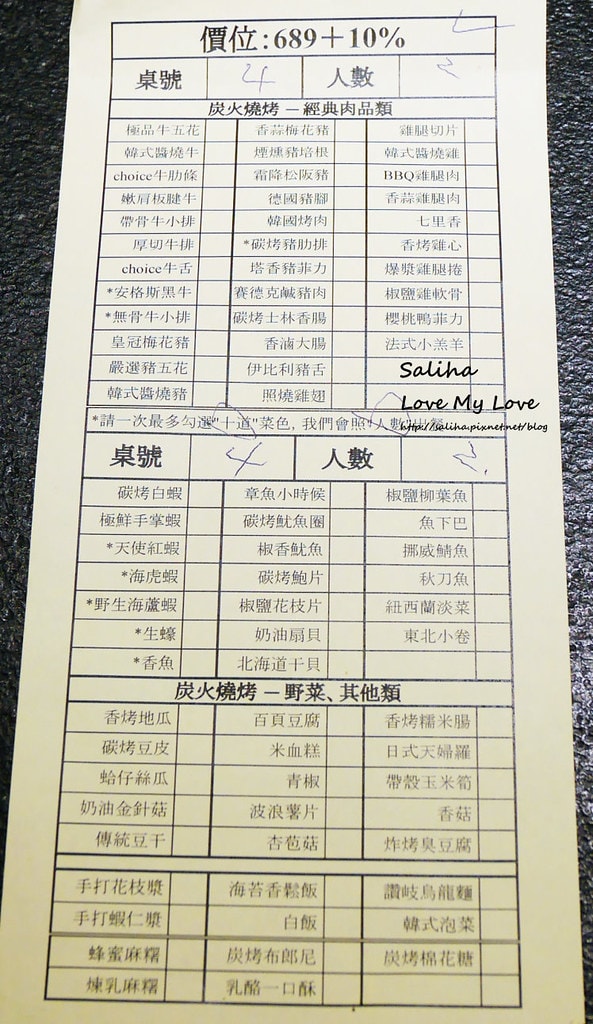 價位：689＋10%
桌號 4 人數 2
炭火燒烤 – 經典肉品類
極品牛五花 香蒜梅花豬 雞腿切片
韓式醬燒牛 煙燻豬培根 韓式醬燒雞
choice牛肋條 霜降松阪豬 BBQ雞腿肉
嫩肩板腱牛 德國豬腳 香蒜雞腿肉
帶骨牛小排 韓國烤肉 七里香
厚切牛排 *碳烤豬肋排 香烤雞心
choice牛舌 塔香豬菲力 爆漿雞腿捲
*安格斯黑牛 賽德克鹹豬肉 椒鹽雞軟骨
*無骨牛小排 碳烤士林香腸 櫻桃鴨菲力
皇冠梅花豬 香滷大腸 法式小羔羊
嚴選豬五花 伊比利豬舌
韓式醬燒豬 照燒雞翅
Saliha
Love My Love
http://saliha.pixnet.net/blog
*請一次最多勾選"十道"菜色, 我們會照"人數"出餐
桌號 4 人數 2
碳烤白蝦 章魚小時候 椒鹽柳葉魚
極鮮手掌蝦 碳烤魷魚圈 魚下巴
*天使紅蝦 椒香魷魚 挪威鯖魚
*海虎蝦 碳烤鮑片 秋刀魚
*野生海蘆蝦 椒鹽花枝片 紐西蘭淡菜
*生蠔 奶油扇貝 東北小卷
*香魚 北海道干貝
炭火燒烤 – 野菜、其他類
香烤地瓜 百頁豆腐 香烤糯米腸
碳烤豆皮 米血糕 日式天婦羅
蛤仔絲瓜 青椒 帶殼玉米筍
奶油金針菇 波浪薯片 香菇
傳統豆干 杏苞菇 炸烤臭豆腐
手打花枝漿 海苔香鬆飯 讚岐烏龍麵
手打蝦仁漿 白飯 韓式泡菜
蜂蜜麻糬 炭烤布郎尼 炭烤棉花糖
煉乳麻糬 乳酪一口酥